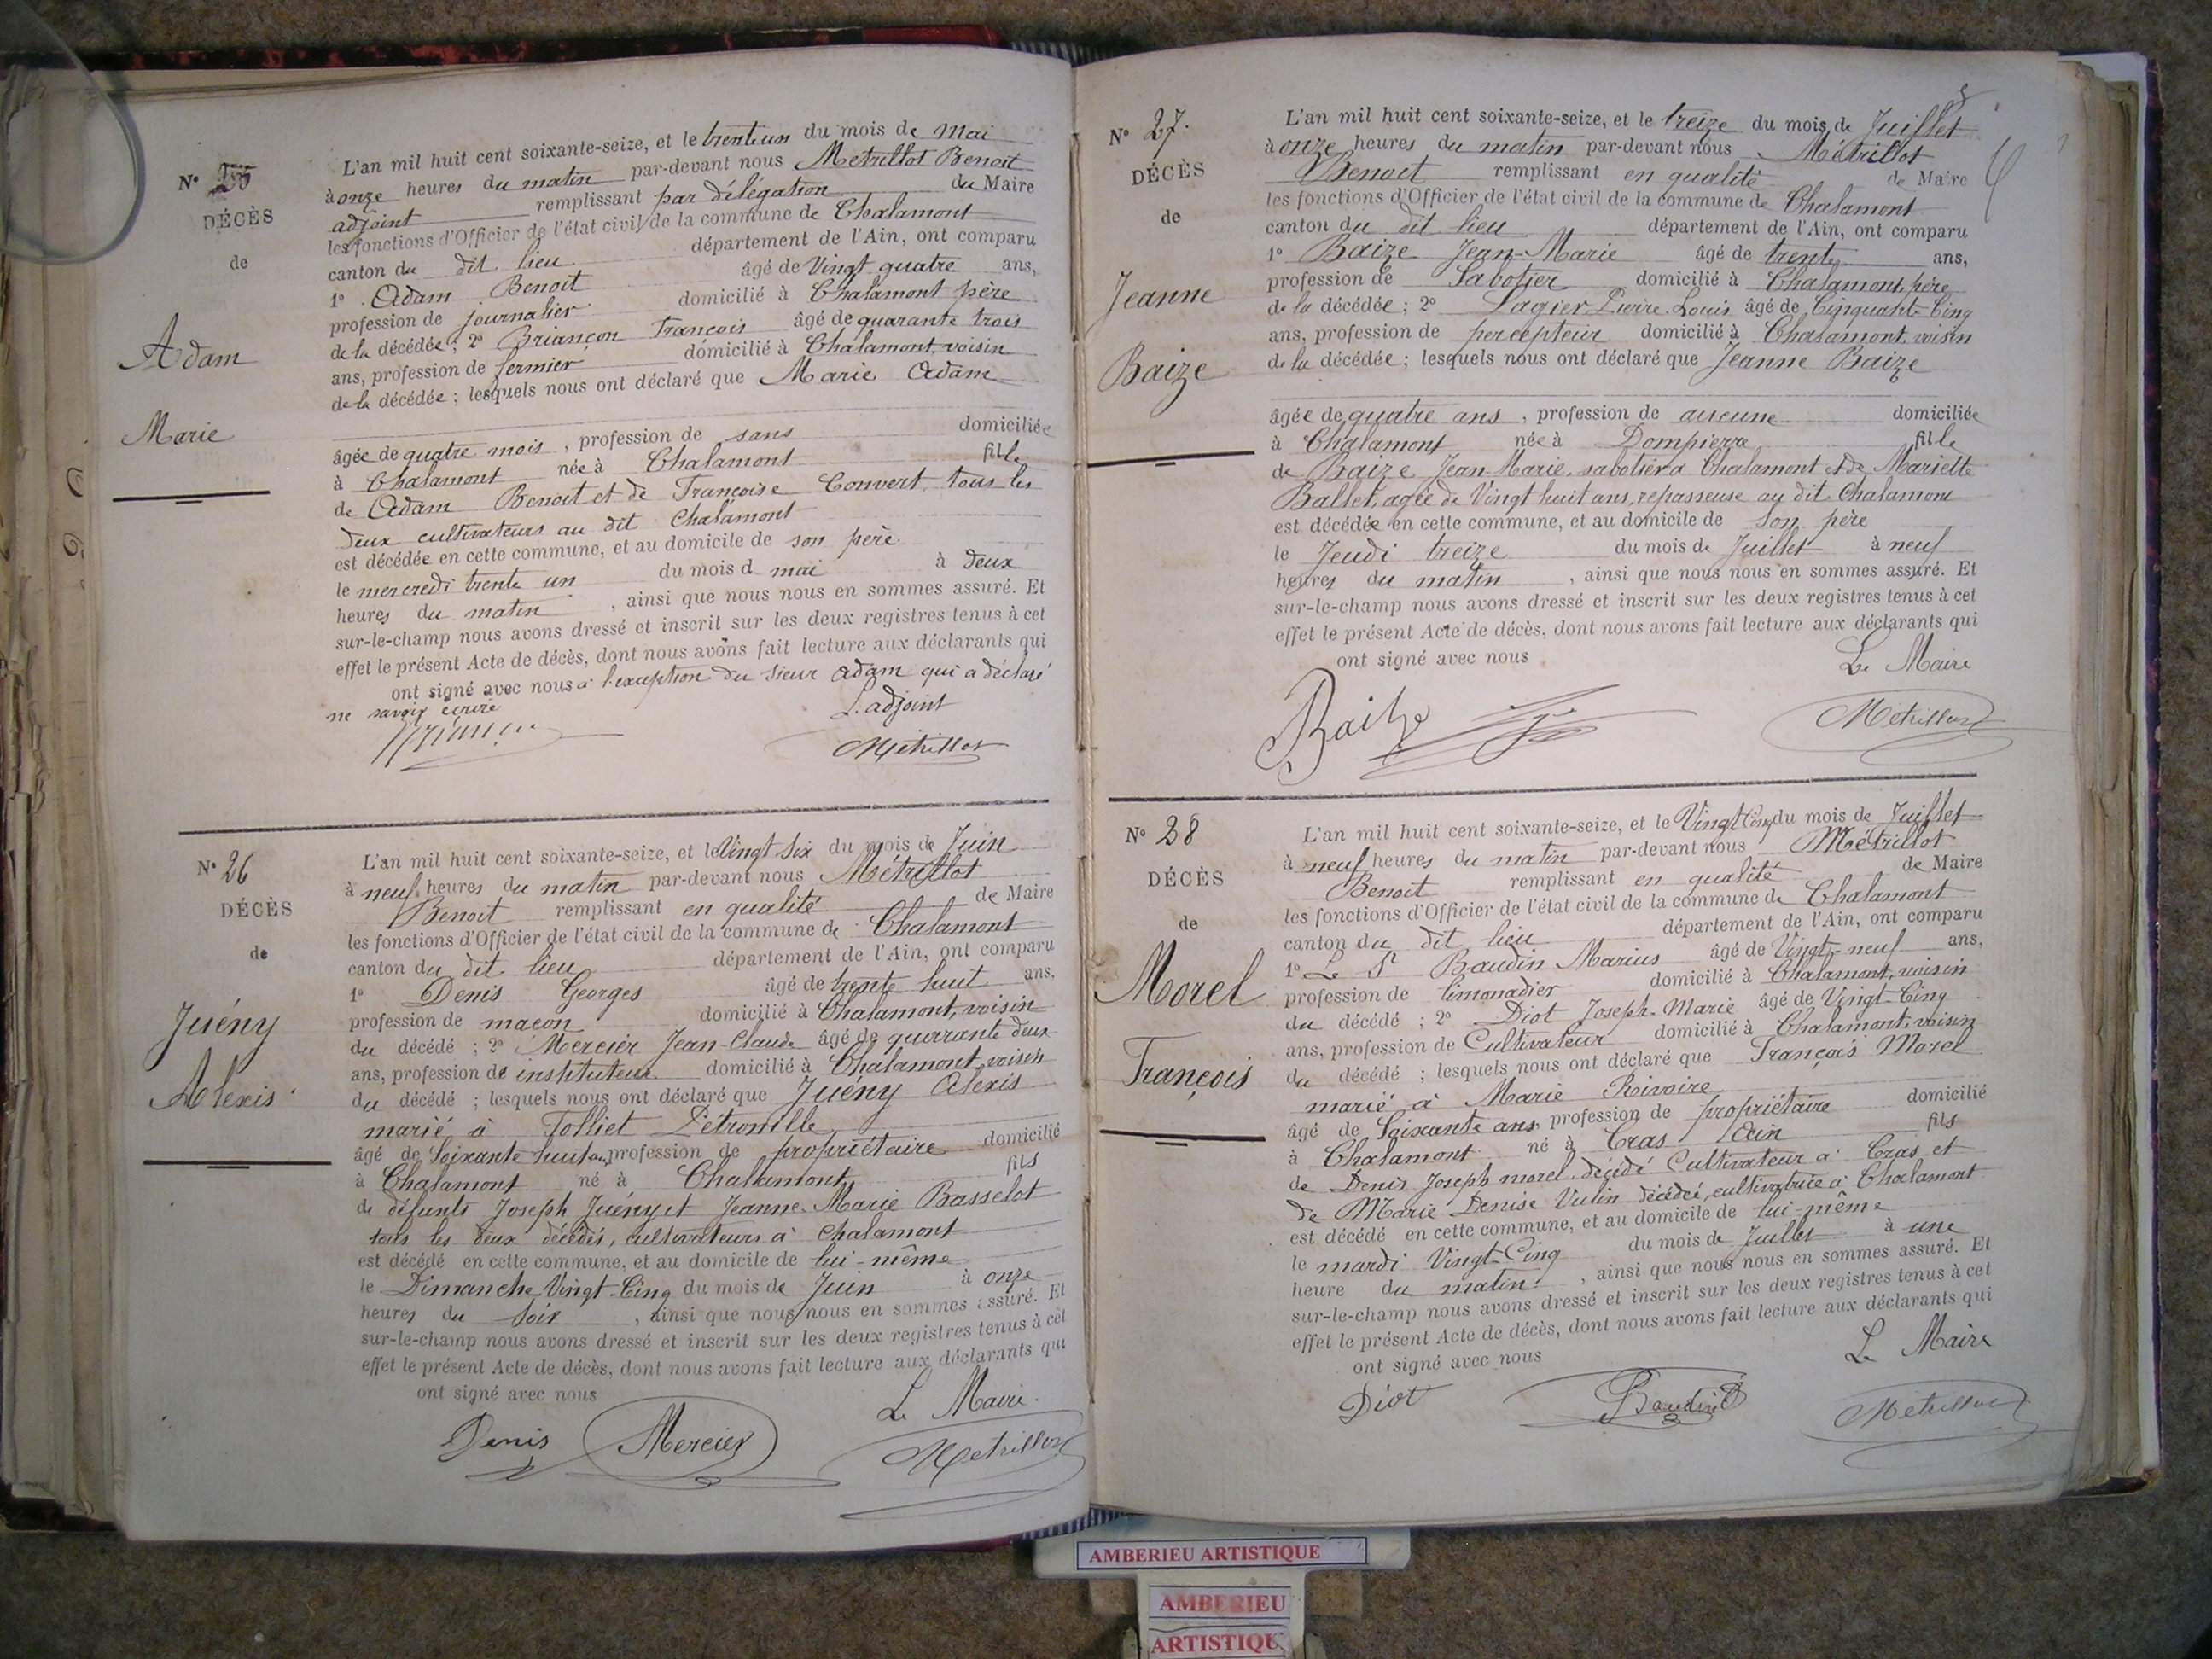 N°
DÉCÈS
de
Adam
Marie
L'an mil huit cent soixante-seize, et le trente un du mois de Mai
à onze heures du matin par-devant nous Métrillot Benoit
adjoint remplissant par délégation du Maire
les fonctions d'Officier de l'état civil de la commune de Chalamont
canton du dit lieu département de l'Ain, ont comparu
1° Adam Benoit âgé de Vingt quatre ans,
profession de journalier domicilié à Chalamont père
de la décédée ; 2° Briançon François âgé de quarante trois
ans, profession de fermier domicilié à Chalamont, voisin
de la décédée ; lesquels nous ont déclaré que Marie Adam
âgée de quatre mois, profession de sans domiciliée
à Chalamont née à Chalamont fille
de Adam Benoit et de Françoise Convert tous les
deux cultivateurs au dit Chalamont
est décédée en cette commune, et au domicile de son père
le mercredi trente un du mois d mai à deux
heures du matin, ainsi que nous nous en sommes assuré. Et
sur-le-champ nous avons dressé et inscrit sur les deux registres tenus à cet
effet le présent Acte de décès, dont nous avons fait lecture aux déclarants qui
ont signé avec nous à l'exception du sieur Adam qui a déclaré
ne savoir écrire
L'adjoint
Métrillot
N° 26
DÉCÈS
de
Juény
Alexis
L'an mil huit cent soixante-seize, et le Vingt Six du mois de Juin
à neuf heures du matin par-devant nous Métrillot
Benoit remplissant en qualité de Maire
les fonctions d'Officier de l'état civil de la commune de Chalamont
canton du dit lieu département de l'Ain, ont comparu
1° Denis Georges âgé de trente huit ans,
profession de maçon domicilié à Chalamont, voisin
du décédé ; 2° Mercier Jean-Claude âgé de quarrante deux
ans, profession de instituteur domicilié à Chalamont, voisin
du décédé ; lesquels nous ont déclaré que Juény Alexis
marié à Tolliet Pétronille
âgé de Soixante huit ans, profession de propriétaire domicilié
à Chalamont né à Chalamont fils
de défunts Joseph Juény et Jeanne-Marie Basselot
tous les deux décédés, cultivateurs à Chalamont
est décédé en cette commune, et au domicile de lui-même
le Dimanche Vingt-Cinq du mois de Juin à onze
heures du soir, ainsi que nous nous en sommes assuré. Et
sur-le-champ nous avons dressé et inscrit sur les deux registres tenus à cet
effet le présent Acte de décès, dont nous avons fait lecture aux déclarants qui
ont signé avec nous
Le Maire.
Denis Mercier Métrillot
N° 27.
DÉCÈS
de
Jeanne
Baize
L'an mil huit cent soixante-seize, et le treize du mois de Juillet
à onze heures du matin par-devant nous Métrillot
Benoit remplissant en qualité de Maire
les fonctions d'Officier de l'état civil de la commune de Chalamont
canton du dit lieu département de l'Ain, ont comparu
1° Baize Jean-Marie âgé de trente ans,
profession de Sabotier domicilié à Chalamont, père
de la décédée ; 2° Lagier Pierre Louis âgé de Cinquante Cinq
ans, profession de percepteur domicilié à Chalamont, voisin
de la décédée ; lesquels nous ont déclaré que Jeanne Baize
âgée de quatre ans, profession de aucune domiciliée
à Chalamont née à Dompierre fille
de Baize Jean-Marie, sabotier à Chalamont et de Mariette
Ballet, agée de Vingt huit ans, repasseuse au dit Chalamont
est décédée en cette commune, et au domicile de son père
le Jeudi treize du mois de Juillet à neuf
heures du matin, ainsi que nous nous en sommes assuré. Et
sur-le-champ nous avons dressé et inscrit sur les deux registres tenus à cet
effet le présent Acte de décès, dont nous avons fait lecture aux déclarants qui
ont signé avec nous
Le Maire
Baize Métrillot
N° 28
DÉCÈS
de
Morel
François
L'an mil huit cent soixante-seize, et le Vingt Cinq du mois de Juillet
à neuf heures du matin par-devant nous Métrillot
Benoit remplissant en qualité de Maire
les fonctions d'Officier de l'état civil de la commune de Chalamont
canton du dit lieu département de l'Ain, ont comparu
1° Le St Baudin Marius âgé de Vingt-neuf ans,
profession de limonadier domicilié à Chalamont, voisin
du décédé ; 2° Diot Joseph-Marie âgé de Vingt-Cinq
ans, profession de Cultivateur domicilié à Chalamont, voisin
du décédé ; lesquels nous ont déclaré que François Morel
marié à Marie Rivoire
âgé de Soixante ans, profession de propriétaire domicilié
à Chalamont né à Cras Ain fils
de Denis Joseph morel, décédé Cultivateur à Cras et
de Marie Denise Vulin décédée, cultivatrice à Chalamont
est décédé en cette commune, et au domicile de lui-même
le mardi Vingt-Cinq du mois de Juillet à une
heure du matin, ainsi que nous nous en sommes assuré. Et
sur-le-champ nous avons dressé et inscrit sur les deux registres tenus à cet
effet le présent Acte de décès, dont nous avons fait lecture aux déclarants qui
ont signé avec nous
Le Maire
Diot Baudin Métrillot
AMBERIEU ARTISTIQUE
AMBERIEU
ARTISTIQUE